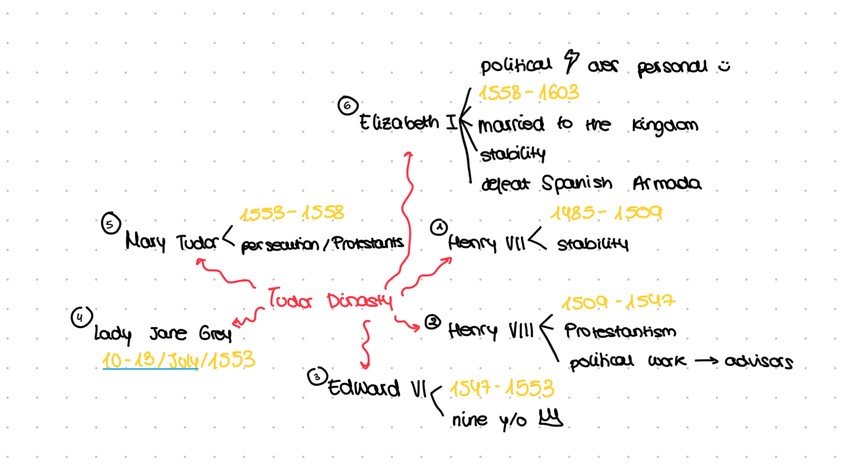 political ⚡ over personal ☺
1558 - 1603
⑥ Elizabeth I
married to the kingdom
stability
defeat Spanish Armada
1553 - 1558
⑤ Mary Tudor
persecution / Protestants
1485 - 1509
① Henry VII
stability
Tudor Dinasty
④ Lady Jane Grey
10-13/July/1553
1509 - 1547
② Henry VIII
Protestantism
political work → advisors
③ Edward VI
1547 - 1553
nine y/o